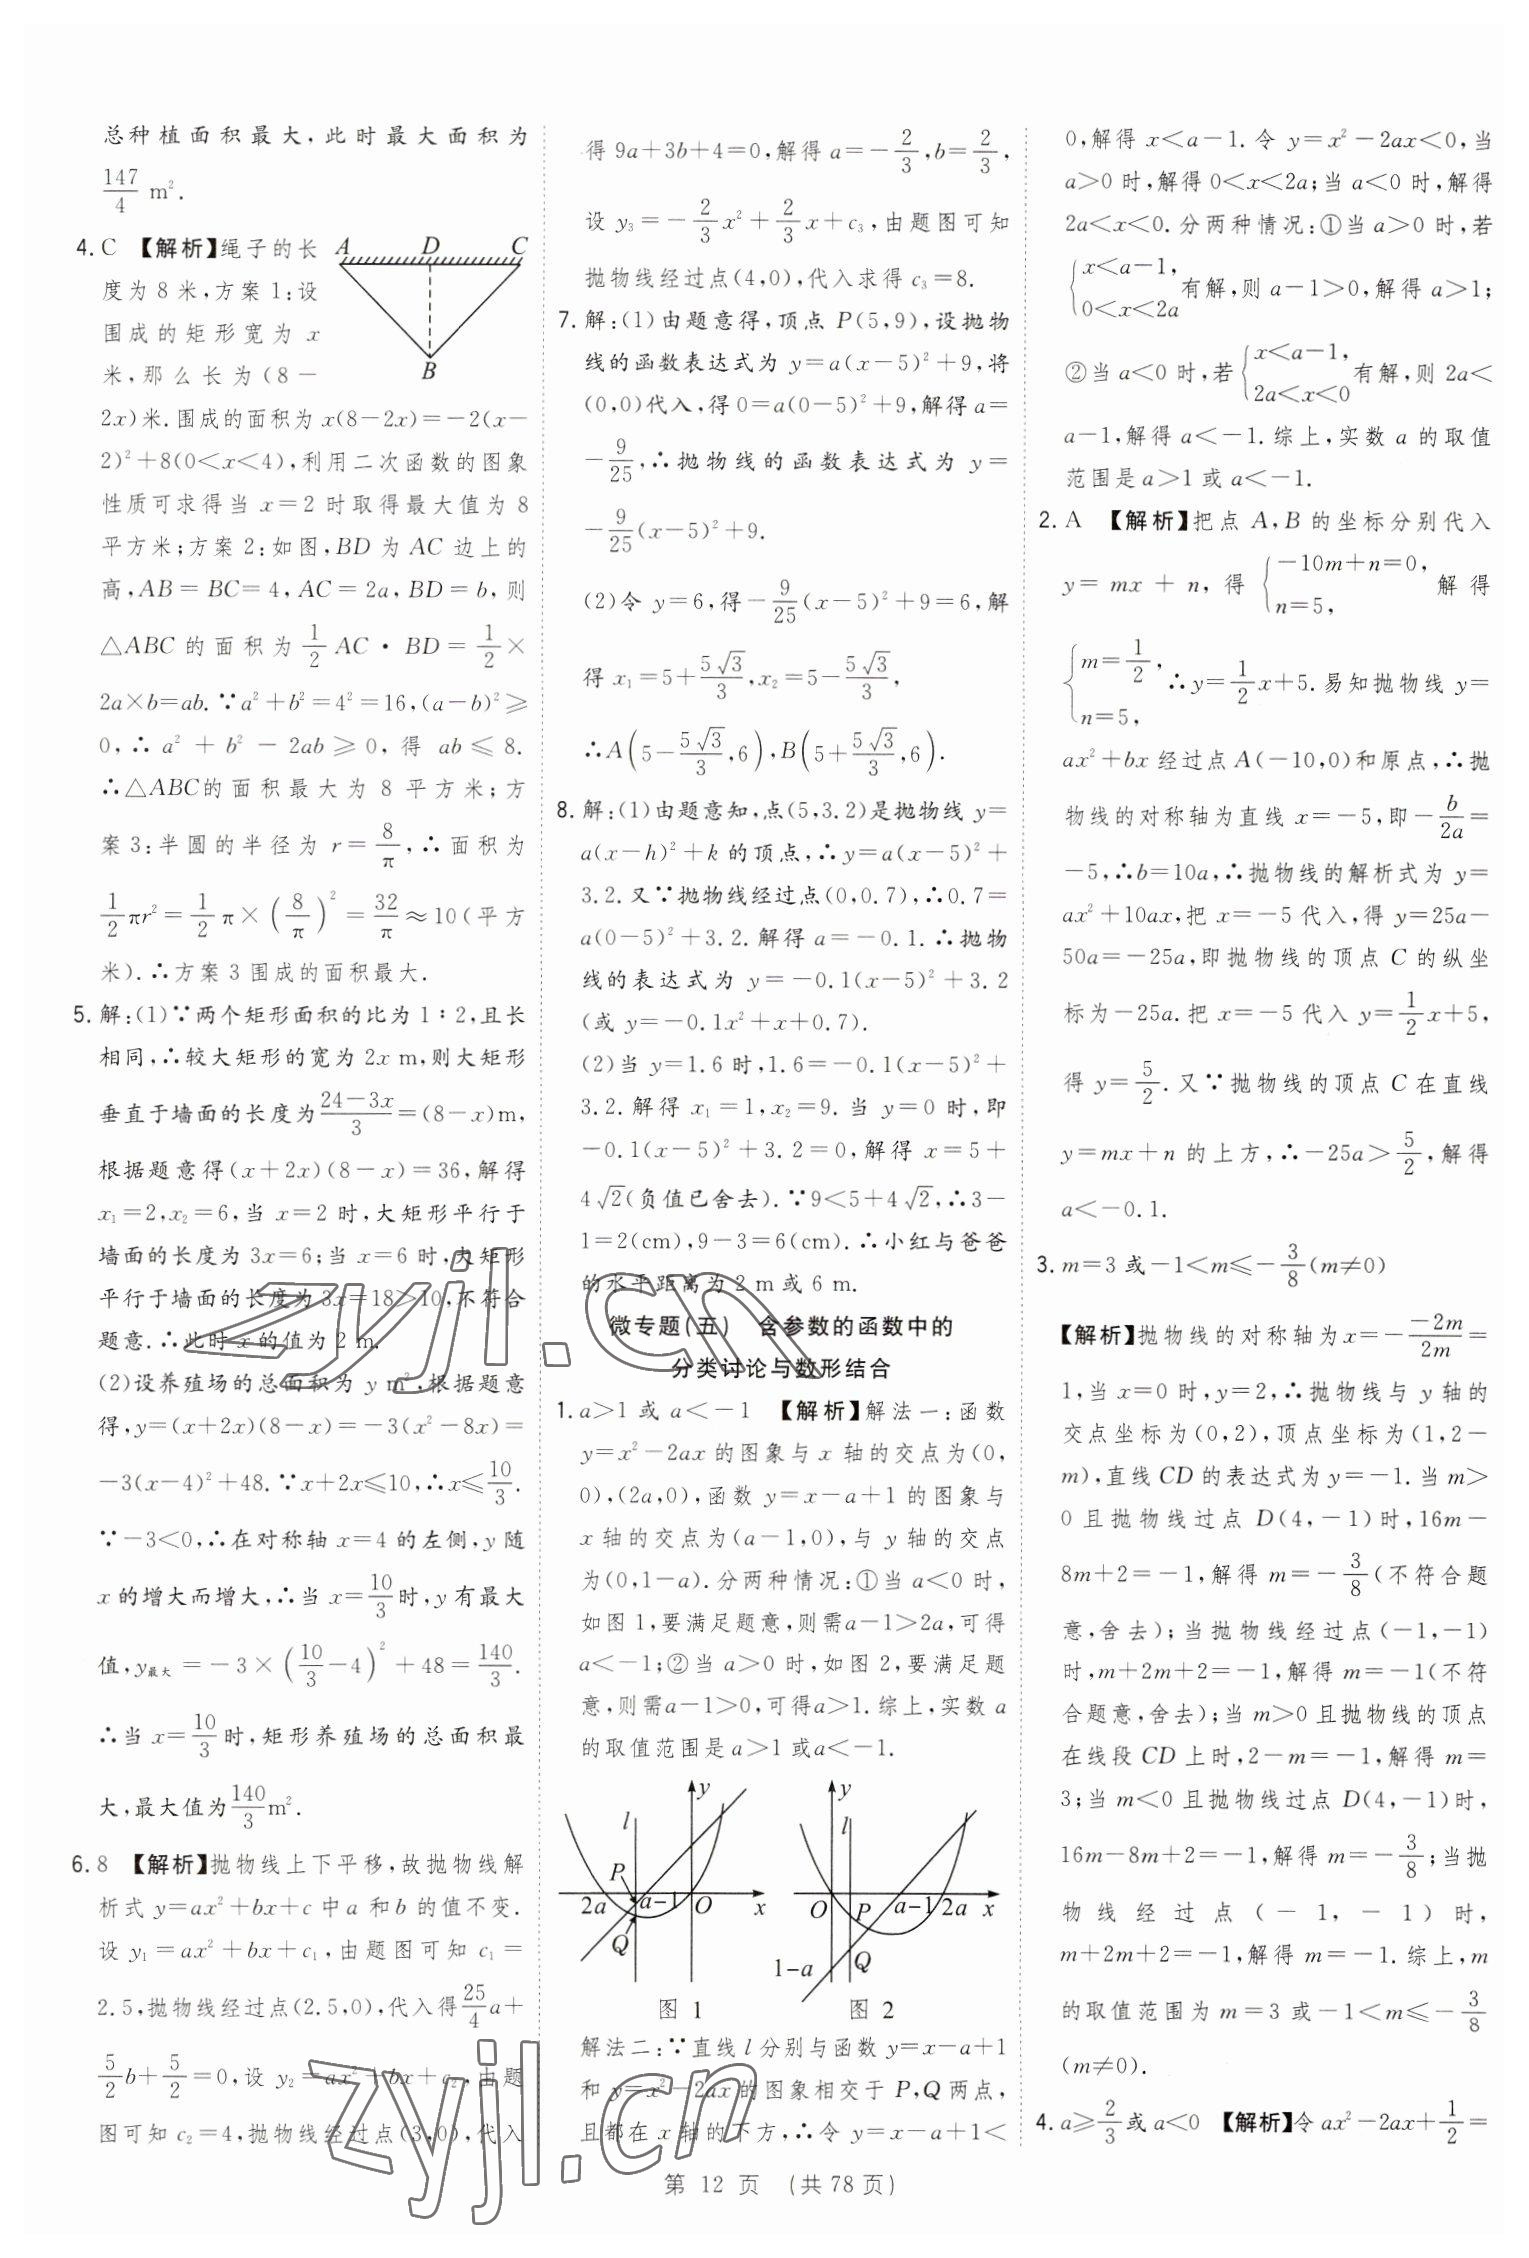 总种植面积最大,此时最大面积为
147/4 m².
4. C 【解析】绳子的长
度为 8 米,方案 1:设
围成的矩形宽为 x
米,那么长为(8-
2x)米.围成的面积为 x(8-2x)=-2(x-
2)²+8(0<x<4),利用二次函数的图象
性质可求得当 x=2 时取得最大值为 8
平方米;方案 2:如图,BD 为 AC 边上的
高,AB=BC=4,AC=2a,BD=b,则
△ABC 的面积为 1/2 AC·BD=1/2×
2a×b=ab.∵a²+b²=4²=16,(a-b)²≥
0,∴a²+b²-2ab≥0,得 ab≤8.
∴△ABC的面积最大为 8 平方米;方
案 3:半圆的半径为 r=8/π,∴面积为
1/2 πr²=1/2 π×(8/π)²=32/π≈10(平方
米).∴方案 3 围成的面积最大.
A D C
B
5. 解:(1)∵两个矩形面积的比为 1∶2,且长
相同,∴较大矩形的宽为 2x m,则大矩形
垂直于墙面的长度为 (24-3x)/3=(8-x)m,
根据题意得(x+2x)(8-x)=36,解得
x₁=2,x₂=6,当 x=2 时,大矩形平行于
墙面的长度为 3x=6;当 x=6 时,大矩形
平行于墙面的长度为 3x=18>10,不符合
题意.∴此时 x 的值为 2 m.
(2)设养殖场的总面积为 y m²,根据题意
得,y=(x+2x)(8-x)=-3(x²-8x)=
-3(x-4)²+48.∵x+2x≤10,∴x≤10/3.
∵-3<0,∴在对称轴 x=4 的左侧,y 随
x 的增大而增大,∴当 x=10/3时,y有最大
值,y最大=-3×(10/3-4)²+48=140/3.
∴当 x=10/3时,矩形养殖场的总面积最
大,最大值为140/3 m².
6. 8 【解析】抛物线上下平移,故抛物线解
析式 y=ax²+bx+c 中a 和b 的值不变.
设 y₁=ax²+bx+c₁,由题图可知 c₁=
2.5,抛物线经过点(2.5,0),代入得25/4 a+
5/2 b+5/2=0,设 y₂=ax²+bx+c₂,由题
图可知 c₂=4,抛物线经过点(3,0),代入
得 9a+3b+4=0,解得 a=-2/3,b=2/3,
设 y₃=-2/3 x²+2/3 x+c₃,由题图可知
抛物线经过点(4,0),代入求得 c₃=8.
7. 解:(1)由题意得,顶点 P(5,9),设抛物
线的函数表达式为 y=a(x-5)²+9,将
(0,0)代入,得 0=a(0-5)²+9,解得 a=
-9/25,∴抛物线的函数表达式为 y=
-9/25(x-5)²+9.
(2)令 y=6,得-9/25(x-5)²+9=6,解
得 x₁=5+5√3/3,x₂=5-5√3/3,
∴A(5-5√3/3,6),B(5+5√3/3,6).
8. 解:(1)由题意知,点(5,3.2)是抛物线 y=
a(x-h)²+k 的顶点,∴y=a(x-5)²+
3.2.又∵抛物线经过点(0,0.7),∴0.7=
a(0-5)²+3.2.解得 a=-0.1.∴抛物
线的表达式为 y=-0.1(x-5)²+3.2
(或 y=-0.1x²+x+0.7).
(2)当 y=1.6 时,1.6=-0.1(x-5)²+
3.2.解得 x₁=1,x₂=9.当 y=0 时,即
-0.1(x-5)²+3.2=0,解得 x=5+
4√2(负值已舍去).∵9<5+4√2,∴3-
1=2(cm),9-3=6(cm).∴小红与爸爸
的水平距离为 2 m 或 6 m.
微专题(五) 含参数的函数中的
分类讨论与数形结合
1. a>1 或 a<-1 【解析】解法一:函数
y=x²-2ax 的图象与 x 轴的交点为(0,
0),(2a,0),函数 y=x-a+1 的图象与
x 轴的交点为(a-1,0),与 y 轴的交点
为(0,1-a).分两种情况:①当 a<0 时,
如图 1,要满足题意,则需a-1>2a,可得
a<-1;②当 a>0 时,如图 2,要满足题
意,则需a-1>0,可得a>1.综上,实数 a
的取值范围是 a>1 或a<-1.
y l P 2a a-1 O x Q
图 1
y l O P a-1 2a x 1-a Q
图 2
解法二:∵直线 l 分别与函数 y=x-a+1
和 y=x²-2ax 的图象相交于 P,Q 两点,
且都在 x 轴的下方,∴令 y=x-a+1<
0,解得 x<a-1.令 y=x²-2ax<0,当
a>0 时,解得 0<x<2a;当 a<0 时,解得
2a<x<0.分两种情况:①当 a>0 时,若
{x<a-1, 0<x<2a 有解,则 a-1>0,解得 a>1;
②当 a<0 时,若{x<a-1, 2a<x<0 有解,则 2a<
a-1,解得 a<-1.综上,实数 a 的取值
范围是 a>1 或 a<-1.
2. A 【解析】把点 A,B 的坐标分别代入
y=mx+n,得 {-10m+n=0, n=5, 解得
{m=1/2, n=5, ∴y=1/2 x+5.易知抛物线 y=
ax²+bx 经过点A(-10,0)和原点,∴抛
物线的对称轴为直线 x=-5,即-b/2a=
-5,∴b=10a,∴抛物线的解析式为 y=
ax²+10ax,把 x=-5 代入,得 y=25a-
50a=-25a,即抛物线的顶点 C 的纵坐
标为-25a.把 x=-5 代入 y=1/2 x+5,
得 y=5/2.又∵抛物线的顶点 C 在直线
y=mx+n 的上方,∴-25a>5/2,解得
a<-0.1.
3. m=3 或-1<m≤-3/8(m≠0)
【解析】抛物线的对称轴为 x=-(-2m)/2m=
1,当 x=0 时,y=2,∴抛物线与 y 轴的
交点坐标为(0,2),顶点坐标为(1,2-
m),直线 CD 的表达式为 y=-1.当 m>
0 且抛物线过点 D(4,-1)时,16m-
8m+2=-1,解得 m=-3/8(不符合题
意,舍去);当抛物线经过点(-1,-1)
时,m+2m+2=-1,解得 m=-1(不符
合题意,舍去);当 m>0 且抛物线的顶点
在线段 CD 上时,2-m=-1,解得 m=
3;当 m<0 且抛物线过点 D(4,-1)时,
16m-8m+2=-1,解得 m=-3/8;当抛
物线经过点(-1,-1)时,
m+2m+2=-1,解得 m=-1.综上,m
的取值范围为 m=3 或-1<m≤-3/8
(m≠0).
4. a≥2/3或 a<0 【解析】令 ax²-2ax+1/2=
第 12 页 (共 78 页)
zyjl.cn
zyjl.cn